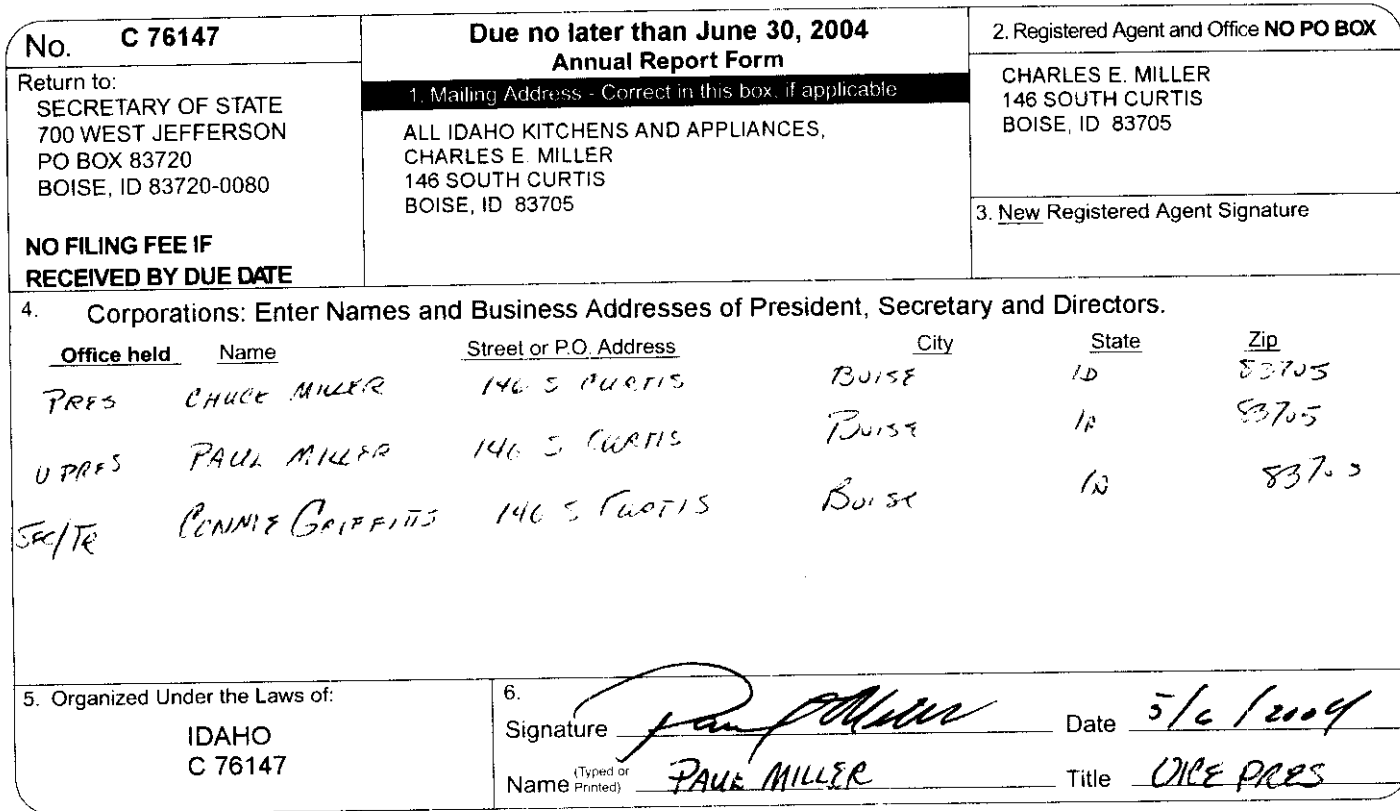 No. C 76147
Return to:
SECRETARY OF STATE
700 WEST JEFFERSON
PO BOX 83720
BOISE, ID 83720-0080
NO FILING FEE IF
RECEIVED BY DUE DATE
Due no later than June 30, 2004
Annual Report Form
1. Mailing Address - Correct in this box, if applicable
ALL IDAHO KITCHENS AND APPLIANCES,
CHARLES E. MILLER
146 SOUTH CURTIS
BOISE, ID 83705
2. Registered Agent and Office NO PO BOX
CHARLES E. MILLER
146 SOUTH CURTIS
BOISE, ID 83705
3. New Registered Agent Signature
4. Corporations: Enter Names and Business Addresses of President, Secretary and Directors.
Office held Name Street or P.O. Address City State Zip
PRES CHUCK MILLER 146 S CURTIS BOISE ID 83705
V PRES PAUL MILLER 146 S CURTIS BOISE ID 83705
SEC/TR CONNIE GRIFFITTS 146 S CURTIS BOISE ID 83705
5. Organized Under the Laws of:
IDAHO
C 76147
6.
Signature Paul Miller Date 5/6/2004
Name (Typed or Printed) PAUL MILLER Title VICE PRES